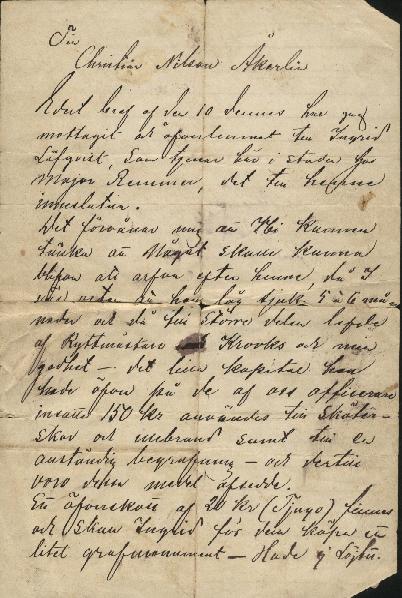 Till
Christian Nilson Åkerlin
Edert bref af den 10 dennes har jag
mottagit och öfverlemnat till Ingrid
Löfqvist, som tjenar här i staden hos
Major Remmer, det till henne
inneslutna.
Det förvånar mig att Ni kunna
tänka att något skulle kunna
blifva att ärfva efter henne, då I
veta att hon låg sjuk 5 a 6 må-
nader och då till större delen lefde
af Ryttmästare Krooks och min
godhet – det lilla kapital hon
hade äfven på de af oss officerare
insatte 150 Kr användes till sköter-
skor och medikamenter samt till en
anständig begrafning – och dertill
voro dessa medel afsedde.
Ett öfverskott af 20 Kr (Tjugo) finnes
och skall Ingrid för den köpa ett
litet grafmonument – Hade ej Löjtn.